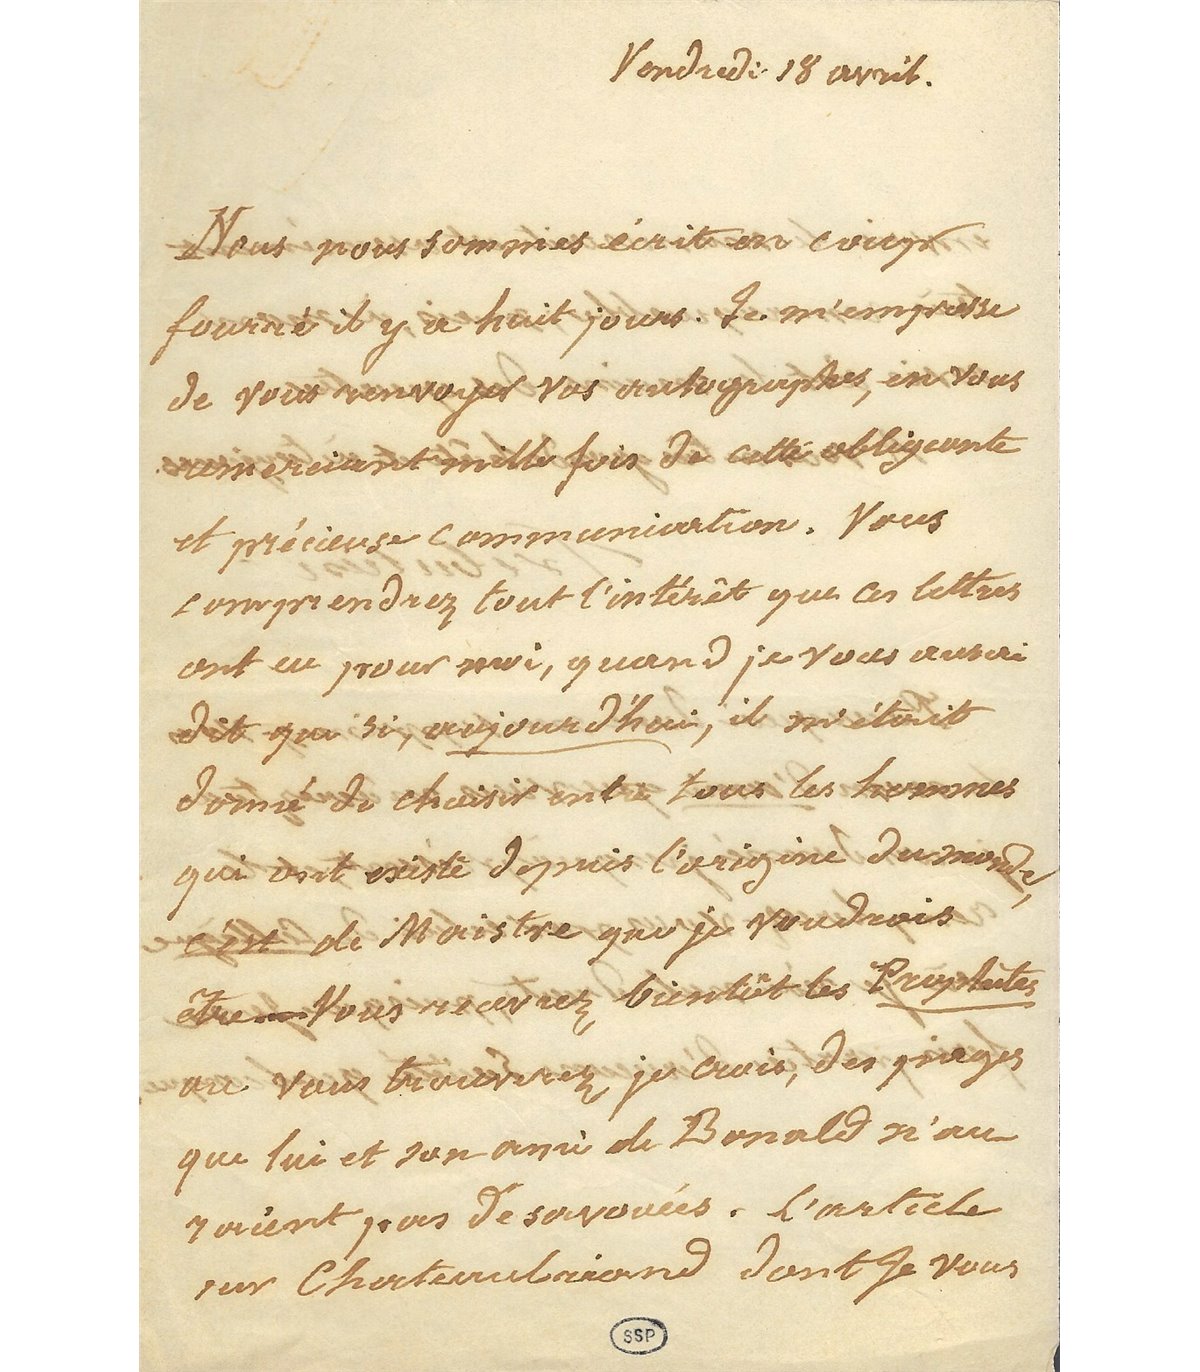 Vendredi 18 avril.
Nous nous sommes écrit en coup
fourré il y a huit jours. Je m'empresse
de vous renvoyer vos autographes, en vous
remerciant mille fois de cette obligeante
et précieuse communication. Vous
comprendrez tout l'intérêt que ces lettres
ont eu pour moi, quand je vous aurai
dit que si, aujourd'hui, il m'étoit
donné de choisir entre tous les hommes
qui ont existé depuis l'origine du monde,
c'est de Maistre que je voudrois
être — Vous recevrez bientôt les Prophètes
où vous trouverez, je crois, des pages
que lui et son ami de Bonald n'au
roient pas desavouées. L'article
sur Chateaubriand dont je vous
SSP